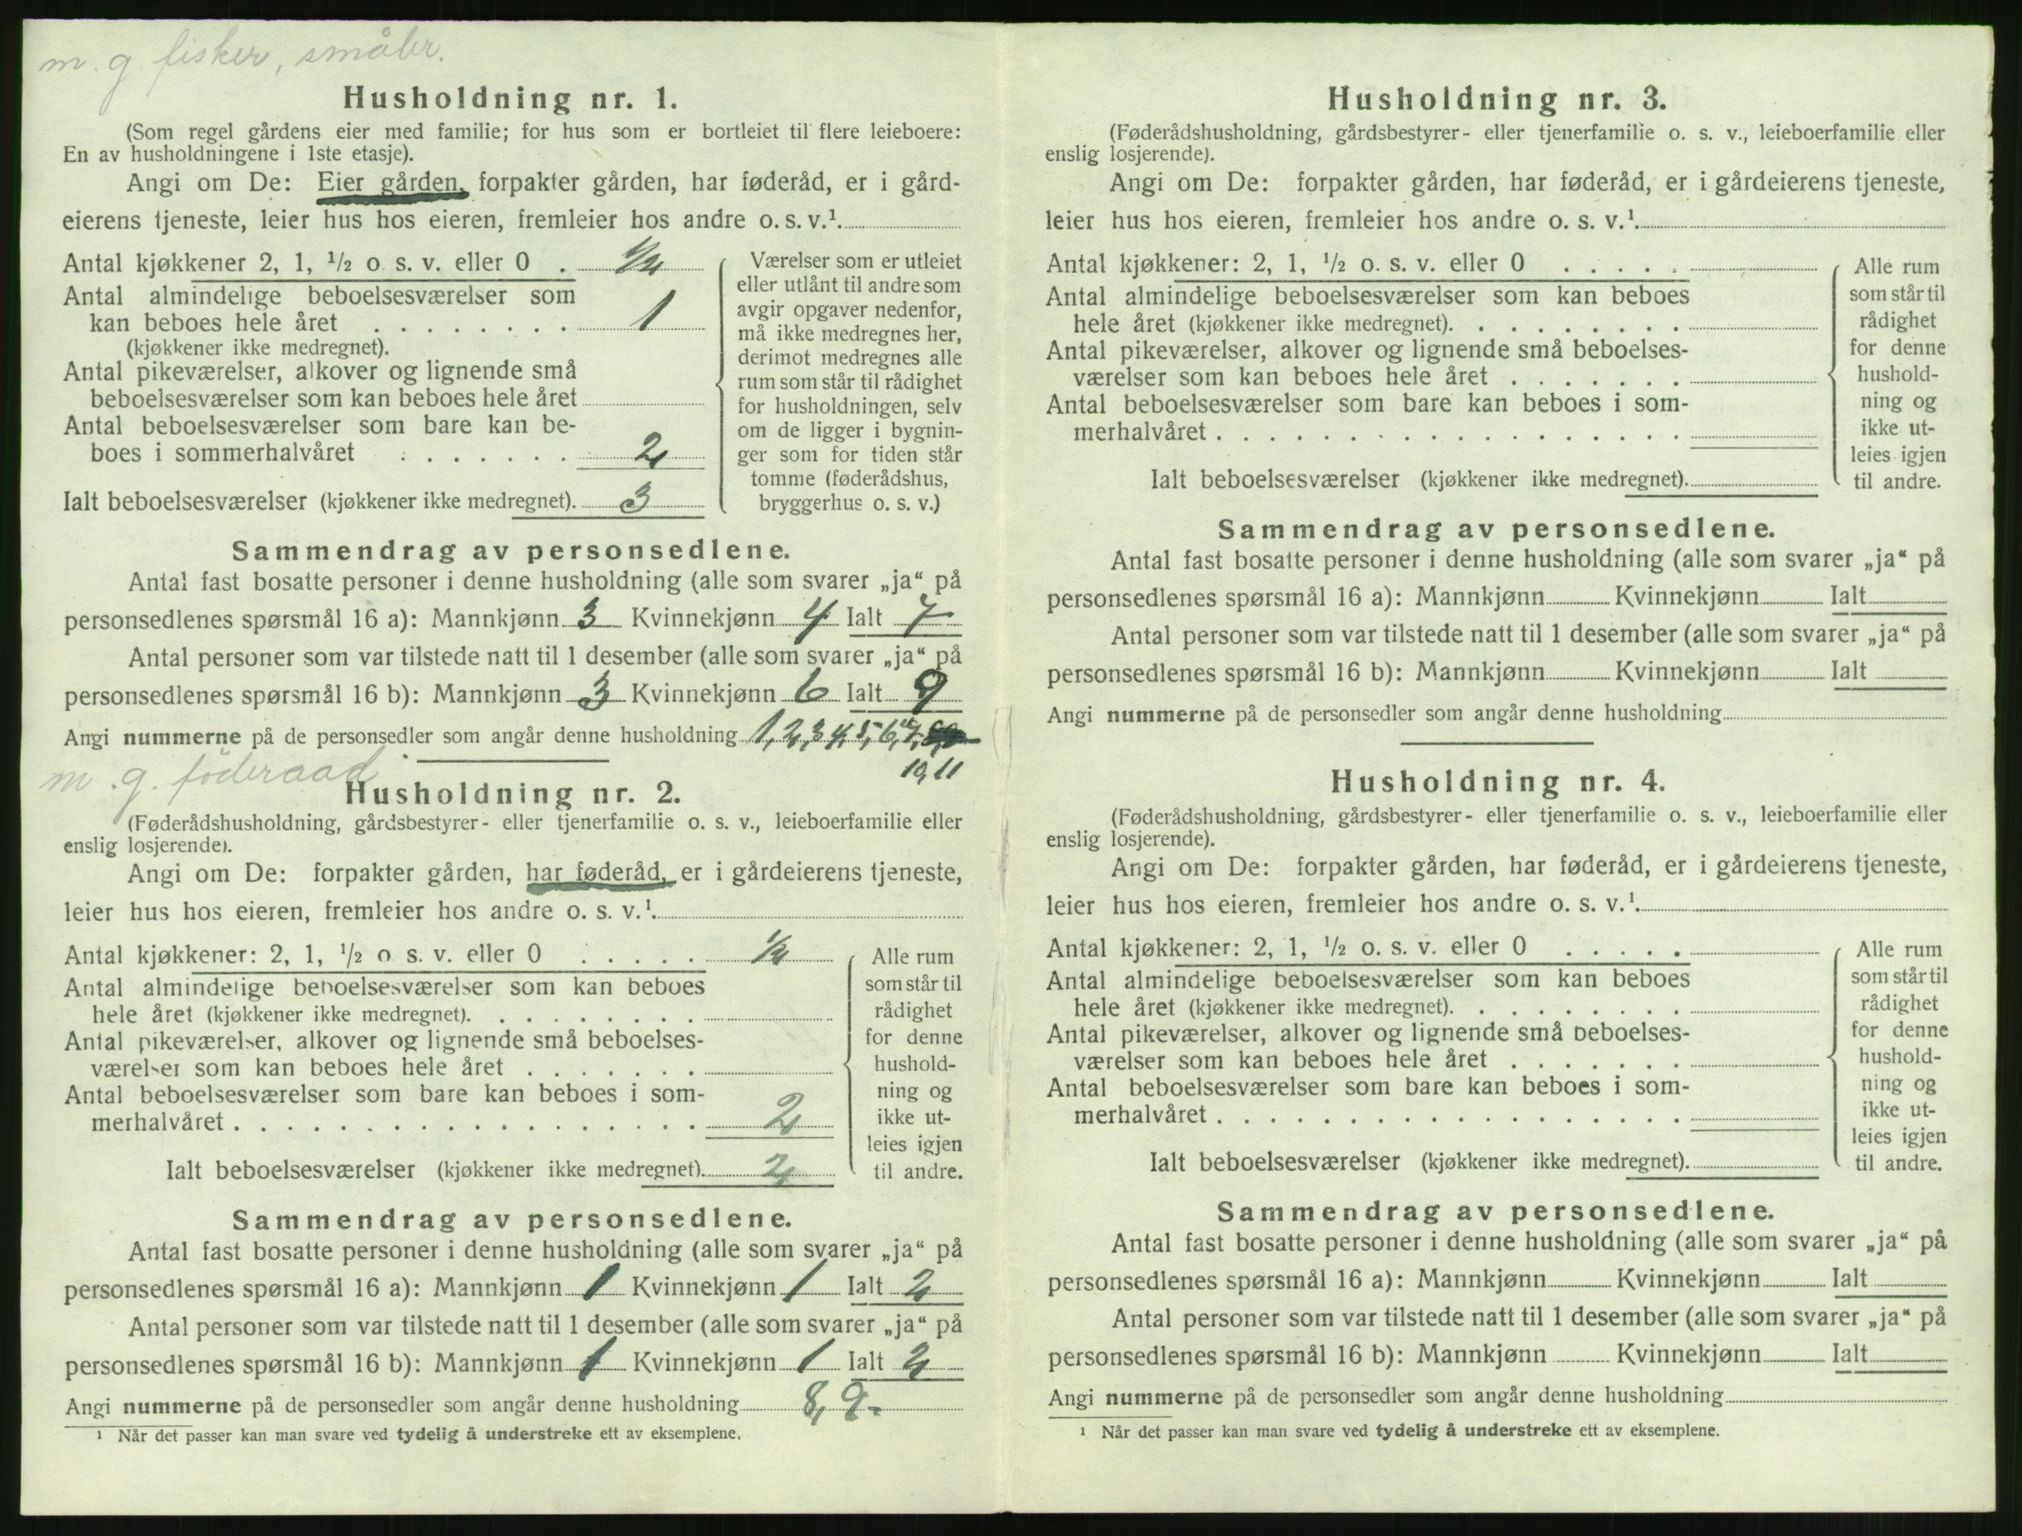 m. g. fisker, småbr.
Husholdning nr. 1.
(Som regel gårdens eier med familie; for hus som er bortleiet til flere leieboere:
En av husholdningene i 1ste etasje).
Angi om De: Eier gården, forpakter gården, har føderåd, er i gård-
eierens tjeneste, leier hus hos eieren, fremleier hos andre o. s. v.¹
Antal kjøkkener 2, 1, ½ o s. v. eller 0 . ½
Antal almindelige beboelsesværelser som
kan beboes hele året . . . . . . . . 1
(kjøkkener ikke medregnet).
Antal pikeværelser, alkover og lignende små
beboelsesværelser som kan beboes hele året
Antal beboelsesværelser som bare kan be-
boes i sommerhalvåret . . . . . . . 2
Ialt beboelsesværelser (kjøkkener ikke medregnet). 3
Værelser som er utleiet
eller utlånt til andre som
avgir opgaver nedenfor,
må ikke medregnes her,
derimot medregnes alle
rum som står til rådighet
for husholdningen, selv
om de ligger i bygnin-
ger som for tiden står
tomme (føderådshus,
bryggerhus o. s. v.)
Sammendrag av personsedlene.
Antal fast bosatte personer i denne husholdning (alle som svarer „ja“ på
personsedlenes spørsmål 16 a): Mannkjønn 3 Kvinnekjønn 4 Ialt 7
Antal personer som var tilstede natt til 1 desember (alle som svarer „ja“ på
personsedlenes spørsmål 16 b): Mannkjønn 3 Kvinnekjønn 6 Ialt 9
Angi nummerne på de personsedler som angår denne husholdning 1, 2, 3, 4, 5, 6, 7,
10, 11
m. g. føderaad
Husholdning nr. 2.
(Føderådshusholdning, gårdsbestyrer- eller tjenerfamilie o. s. v., leieboerfamilie eller
enslig losjerende).
Angi om De: forpakter gården, har føderåd, er i gårdeierens tjeneste,
leier hus hos eieren, fremleier hos andre o. s. v.¹
Antal kjøkkener: 2, 1, ½ o. s. v. eller 0 . . . . . ½
Antal almindelige beboelsesværelser som kan beboes
hele året (kjøkkener ikke medregnet). . . . . . . . .
Antal pikeværelser, alkover og lignende små beboelses-
værelser som kan beboes hele året . . . . . . .
Antal beboelsesværelser som bare kan beboes i som-
merhalvåret . . . . . . . . . . . . . . . . . . 2
Ialt beboelsesværelser (kjøkkener ikke medregnet). 2
Alle rum
som står til
rådighet
for denne
hushold-
ning og
ikke ut-
leies igjen
til andre.
Sammendrag av personsedlene.
Antal fast bosatte personer i denne husholdning (alle som svarer „ja“ på
personsedlenes spørsmål 16 a): Mannkjønn 1 Kvinnekjønn 1 Ialt 2
Antal personer som var tilstede natt til 1 desember (alle som svarer „ja“ på
personsedlenes spørsmål 16 b): Mannkjønn 1 Kvinnekjønn 1 Ialt 2
Angi nummerne på de personsedler som angår denne husholdning 8, 9.
¹ Når det passer kan man svare ved tydelig å understreke ett av eksemplene.
Husholdning nr. 3.
(Føderådshusholdning, gårdsbestyrer- eller tjenerfamilie o. s. v., leieboerfamilie eller
enslig losjerende).
Angi om De: forpakter gården, har føderåd, er i gårdeierens tjeneste,
leier hus hos eieren, fremleier hos andre o. s. v.¹
Antal kjøkkener: 2, 1, ½ o. s. v. eller 0 . . . . .
Antal almindelige beboelsesværelser som kan beboes
hele året (kjøkkener ikke medregnet). . . . . . . . .
Antal pikeværelser, alkover og lignende små beboelses-
værelser som kan beboes hele året . . . . . . .
Antal beboelsesværelser som bare kan beboes i som-
merhalvåret . . . . . . . . . . . . . . . . . .
Ialt beboelsesværelser (kjøkkener ikke medregnet).
Alle rum
som står til
rådighet
for denne
hushold-
ning og
ikke ut-
leies igjen
til andre.
Sammendrag av personsedlene.
Antal fast bosatte personer i denne husholdning (alle som svarer „ja“ på
personsedlenes spørsmål 16 a): Mannkjønn Kvinnekjønn Ialt
Antal personer som var tilstede natt til 1 desember (alle som svarer „ja“ på
personsedlenes spørsmål 16 b): Mannkjønn Kvinnekjønn Ialt
Angi nummerne på de personsedler som angår denne husholdning
Husholdning nr. 4.
(Føderådshusholdning, gårdsbestyrer- eller tjenerfamilie o. s. v., leieboerfamilie eller
enslig losjerende).
Angi om De: forpakter gården, har føderåd, er i gårdeierens tjeneste,
leier hus hos eieren, fremleier hos andre o. s. v.¹
Antal kjøkkener: 2, 1, ½ o. s. v. eller 0 . . . . .
Antal almindelige beboelsesværelser som kan beboes
hele året (kjøkkener ikke medregnet). . . . . . . . .
Antal pikeværelser, alkover og lignende små beboelses-
værelser som kan beboes hele året . . . . . . .
Antal beboelsesværelser som bare kan beboes i som-
merhalvåret . . . . . . . . . . . . . . . . . .
Ialt beboelsesværelser (kjøkkener ikke medregnet).
Alle rum
som står til
rådighet
for denne
hushold-
ning og
ikke ut-
leies igjen
til andre.
Sammendrag av personsedlene.
Antal fast bosatte personer i denne husholdning (alle som svarer „ja“ på
personsedlenes spørsmål 16 a): Mannkjønn Kvinnekjønn Ialt
Antal personer som var tilstede natt til 1 desember (alle som svarer „ja“ på
personsedlenes spørsmål 16 b): Mannkjønn Kvinnekjønn Ialt
Angi nummerne på de personsedler som angår denne husholdning
¹ Når det passer kan man svare ved tydelig å understreke ett av eksemplene.